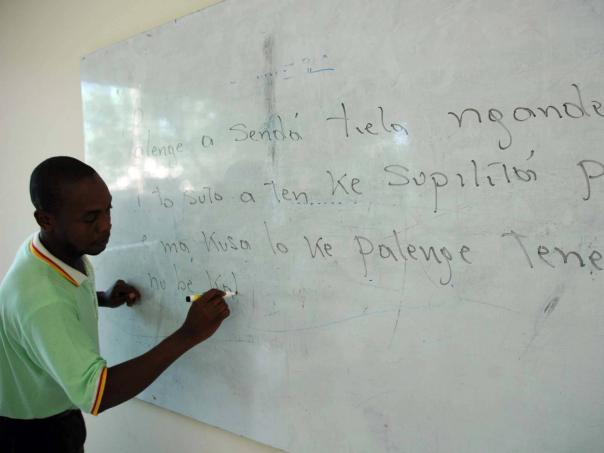 Palenge a sendá tiela ngande
to suto a ten ke supilitái p
ma kusa lo ke palenge tene
nu be